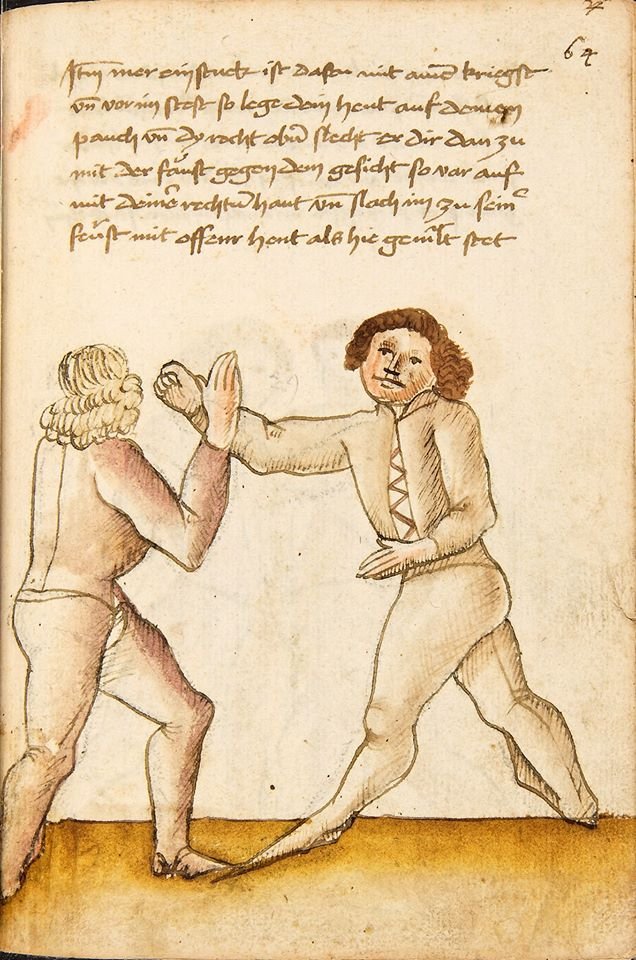 64
Itm̄ mer ein stuck ist das du mit aine͞ kriegst
vn̄ vor im stest so lege dein hent auf deinen
pauch vn̄ dy recht obn̄ slecht er dir dan zu
mit der faust gegen dem gesicht so var auf
mit deinē rechtn̄ hant vn̄ slach im zu sein
feust mit offenr hent als hie gemalt stet